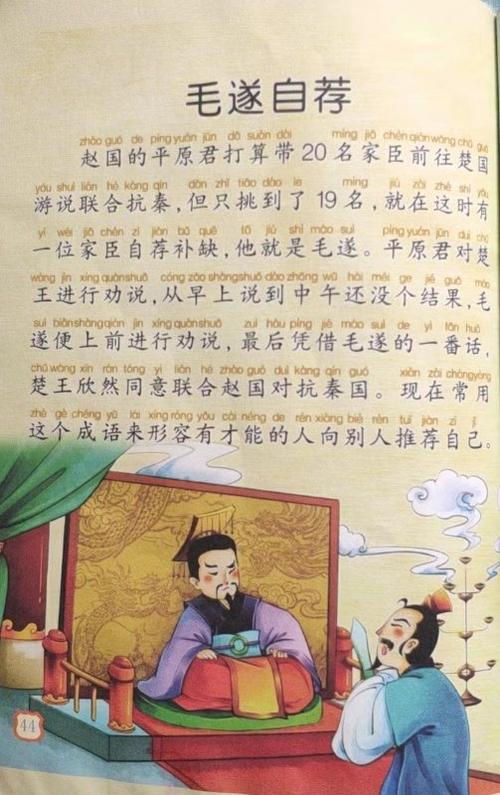 毛遂自荐
zhào guó de píng yuán jūn dǎ suàn dài míng jiā chén qián wǎng chǔ guó
赵国的平原君打算带20名家臣前往楚国
yóu shuì lián hé kàng qín dàn zhǐ tiāo dào le míng jiù zài zhè shí yǒu
游说联合抗秦,但只挑到了19名,就在这时有
yí wèi jiā chén zì jiàn bǔ quē tā jiù shì máo suì píng yuán jūn duì chǔ
一位家臣自荐补缺,他就是毛遂。平原君对楚
wáng jìn xíng quàn shuō cóng zǎo shàng shuō dào zhōng wǔ hái méi ge jié guǒ máo
王进行劝说,从早上说到中午还没个结果,毛
suì biàn shàng qián jìn xíng quàn shuō zuì hòu píng jiè máo suì de yì fān huà
遂便上前进行劝说,最后凭借毛遂的一番话,
chǔ wáng xīn rán tóng yì lián hé zhào guó duì kàng qín guó xiàn zài cháng yòng
楚王欣然同意联合赵国对抗秦国。现在常用
zhè gè chéng yǔ lái xíng róng yǒu cái néng de rén xiàng bié rén tuī jiàn zì jǐ
这个成语来形容有才能的人向别人推荐自己。
44